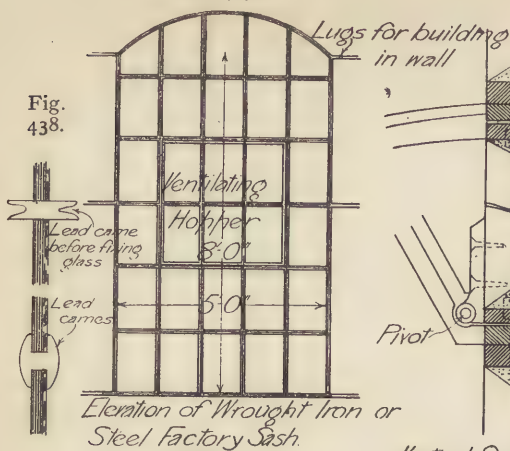 Lugs for building
in wall
Fig.
438.
Ventilating
Hopper
8'-0"
5'-0"
Lead came
before fixing
glass
Lead
cames
Pivot
Elevation of Wrought Iron or
Steel Factory Sash.